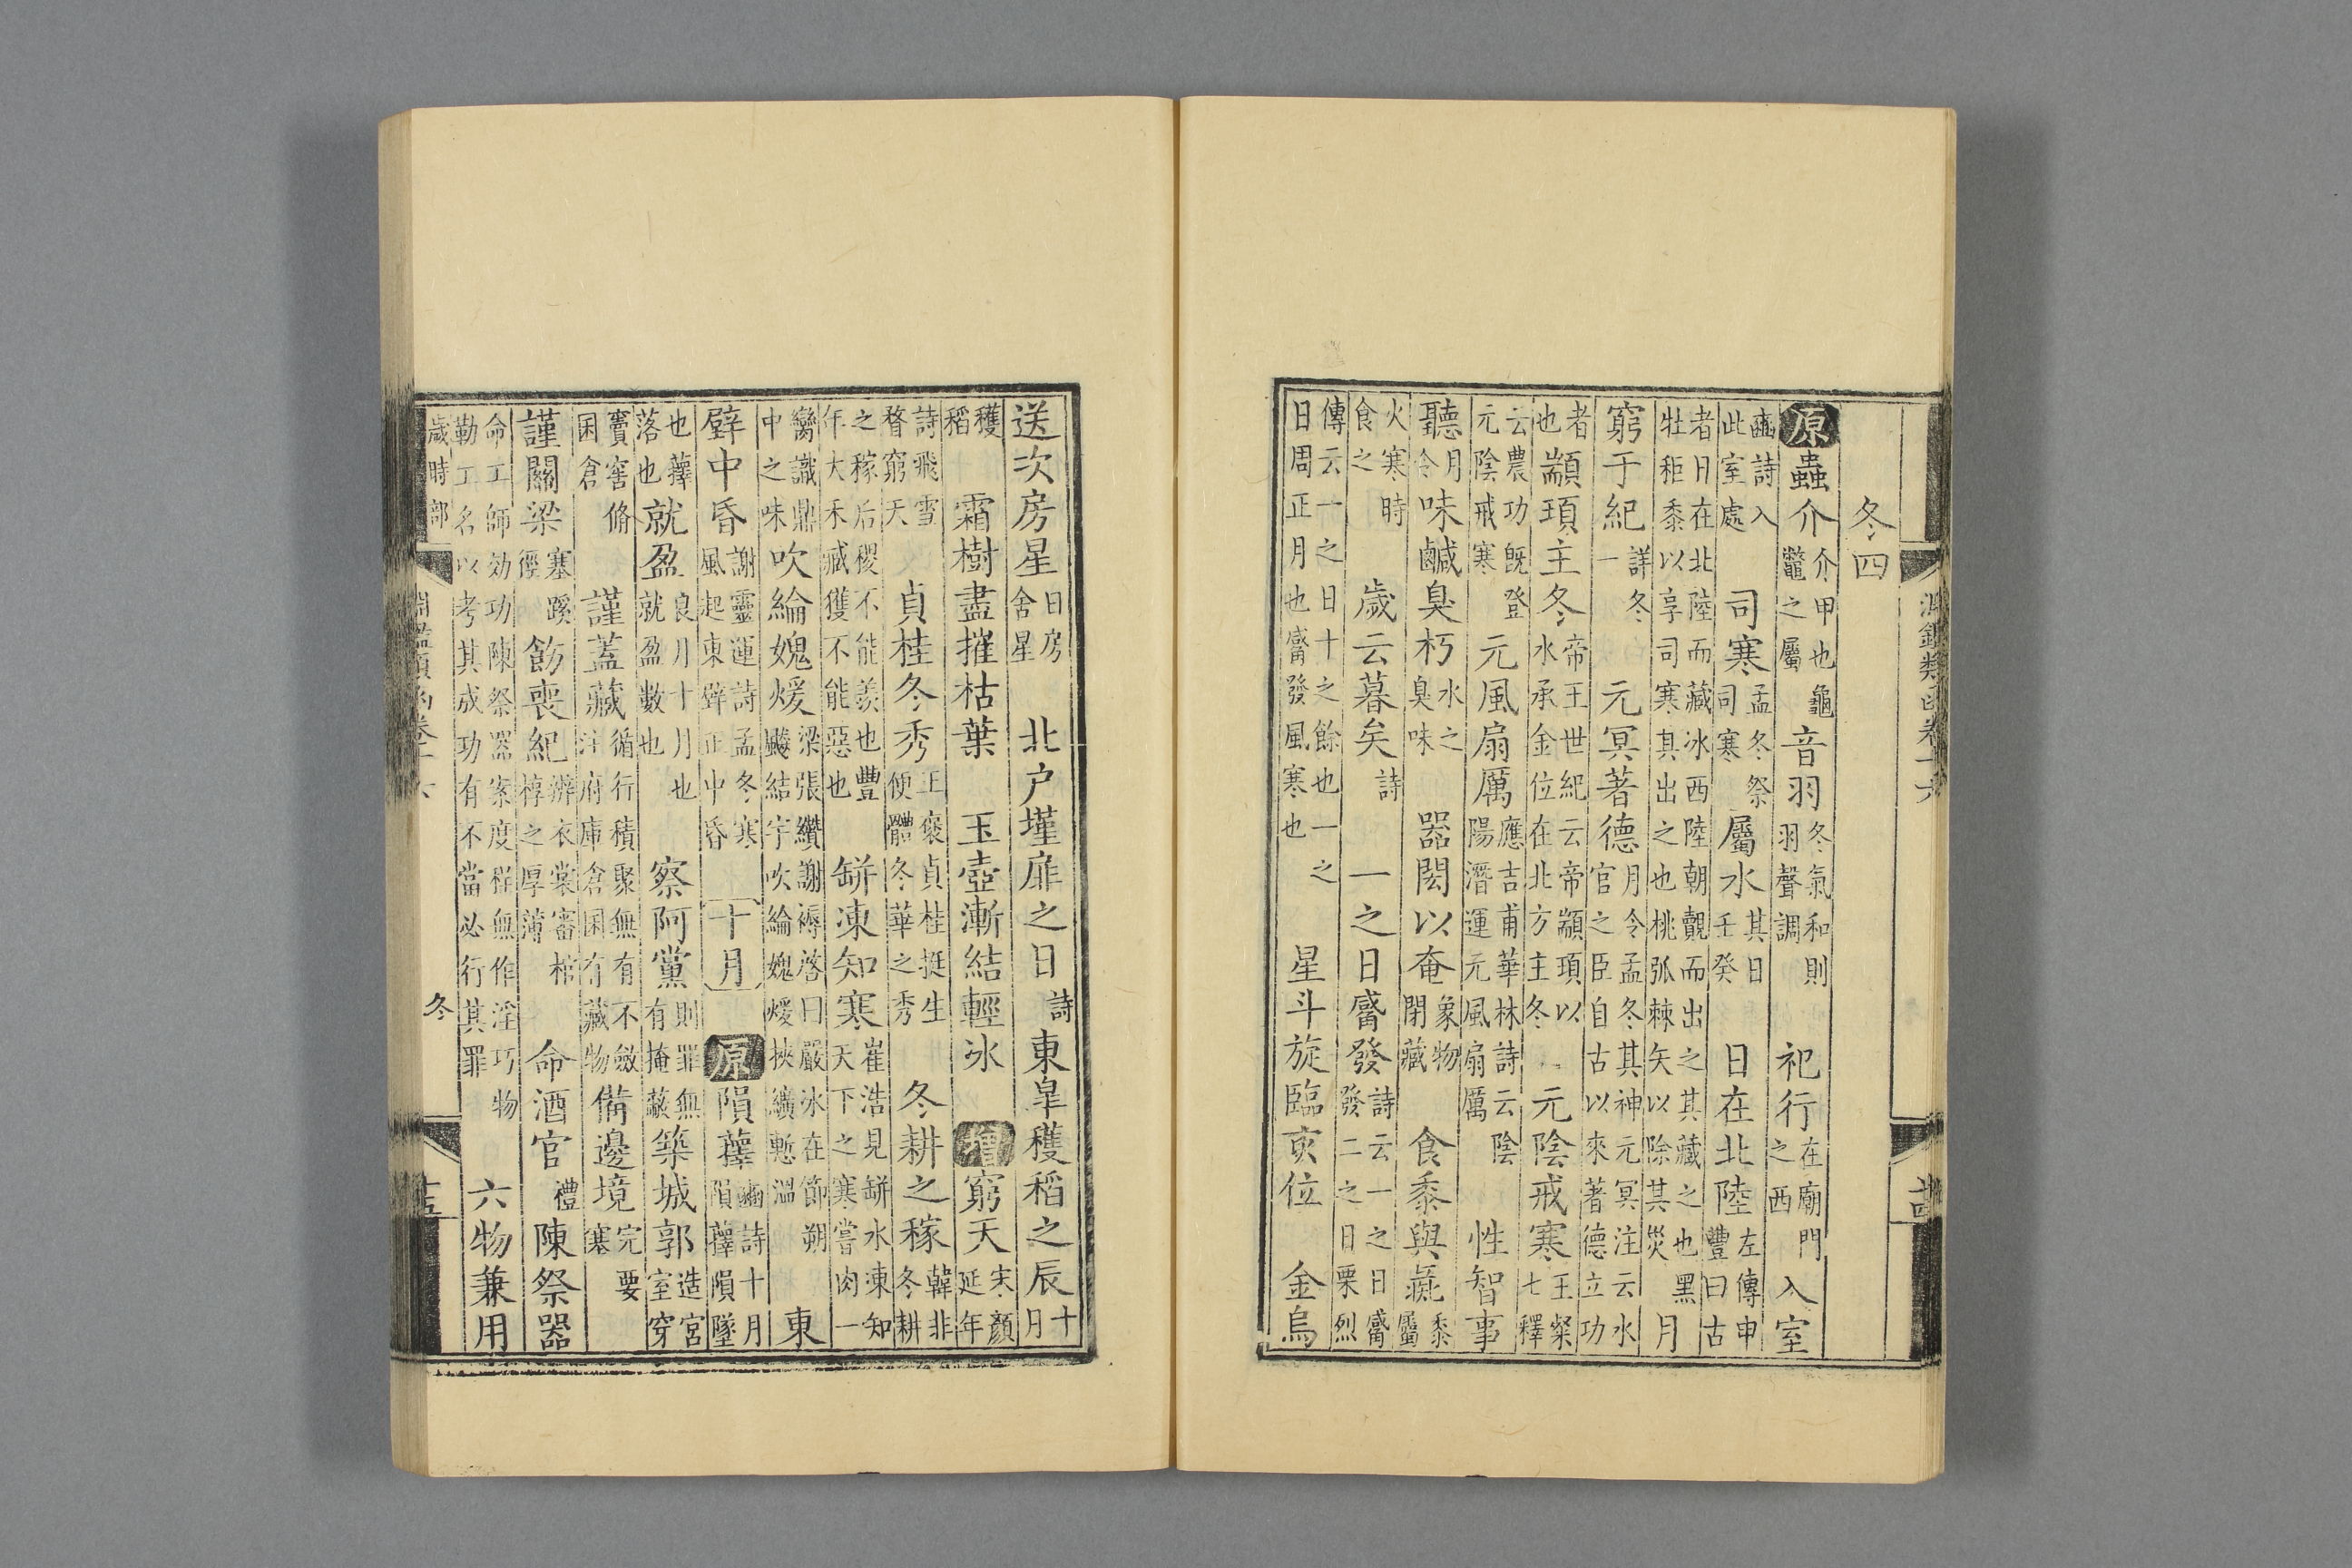 淵鑑類函卷十六
冬四
原蟲介介甲也龜鼈之屬音羽冬氣和則羽聲調祀行在廟門之西入室
豳詩入此室處司寒孟冬祭司寒屬水其日壬癸日在北陸左傳申豐曰古
者日在北陸而藏冰西陸朝覿而出之其藏之也黑牡秬黍以享司寒其出之也桃弧棘矢以除其災月
窮于紀詳冬一元冥著德月令孟冬其神元冥注云水官之臣自古以來著德立功
者也顓頊主冬帝王世紀云帝顓頊以水承金位在北方主冬元陰戒寒王粲七釋
云農功既登元陰戒寒元風扇厲應吉甫華林詩云陰陽潛運元風扇厲性智事
聽月令味鹹臭朽水之臭味器閎以奄象物閉藏食黍與彘黍屬
火寒時食之歲云暮矣詩一之日觱發詩云一之日觱發二之日栗烈
傳云一之日十之餘也一之日周正月也觱發風寒也星斗旋臨亥位金烏
送次房星日房舍星北户墐扉之日詩東皐穫稻之辰十月
穫稻霜樹盡摧枯葉玉壺漸結輕冰增窮天宋顏延年
詩飛雪瞀窮天貞桂冬秀王襃貞桂挺生便體冬華之秀冬耕之稼韓非冬耕
之稼后稷不能羨也豐年大禾臧獲不能惡也缾凍知寒崔浩見缾水凍知天下之寒嘗肉一
臠識鼎中之味吹綸媿煖梁張纘謝褥啓曰嚴冰在節朔飈結宇吹綸媿煖挾纊慙溫東
壁中昏謝靈運詩孟冬寒風起東壁正中昏十月原隕蘀豳詩十月隕蘀隕墜
也蘀落也就盈良月十月也就盈數也察阿黨則罪無有掩蔽築城郭造宮室穿
竇窖脩囷倉謹蓋藏循行積聚無有不斂注府庫倉囷有藏物備邊境完要塞
謹關梁塞蹊徑飭喪紀辨衣裳審棺椁之厚薄命酒官禮陳祭器
命工師効功陳祭器案度程無作淫巧物勒工名以考其成功有不當必行其罪六物兼用
歲時部 淵鑑類函卷十六 冬